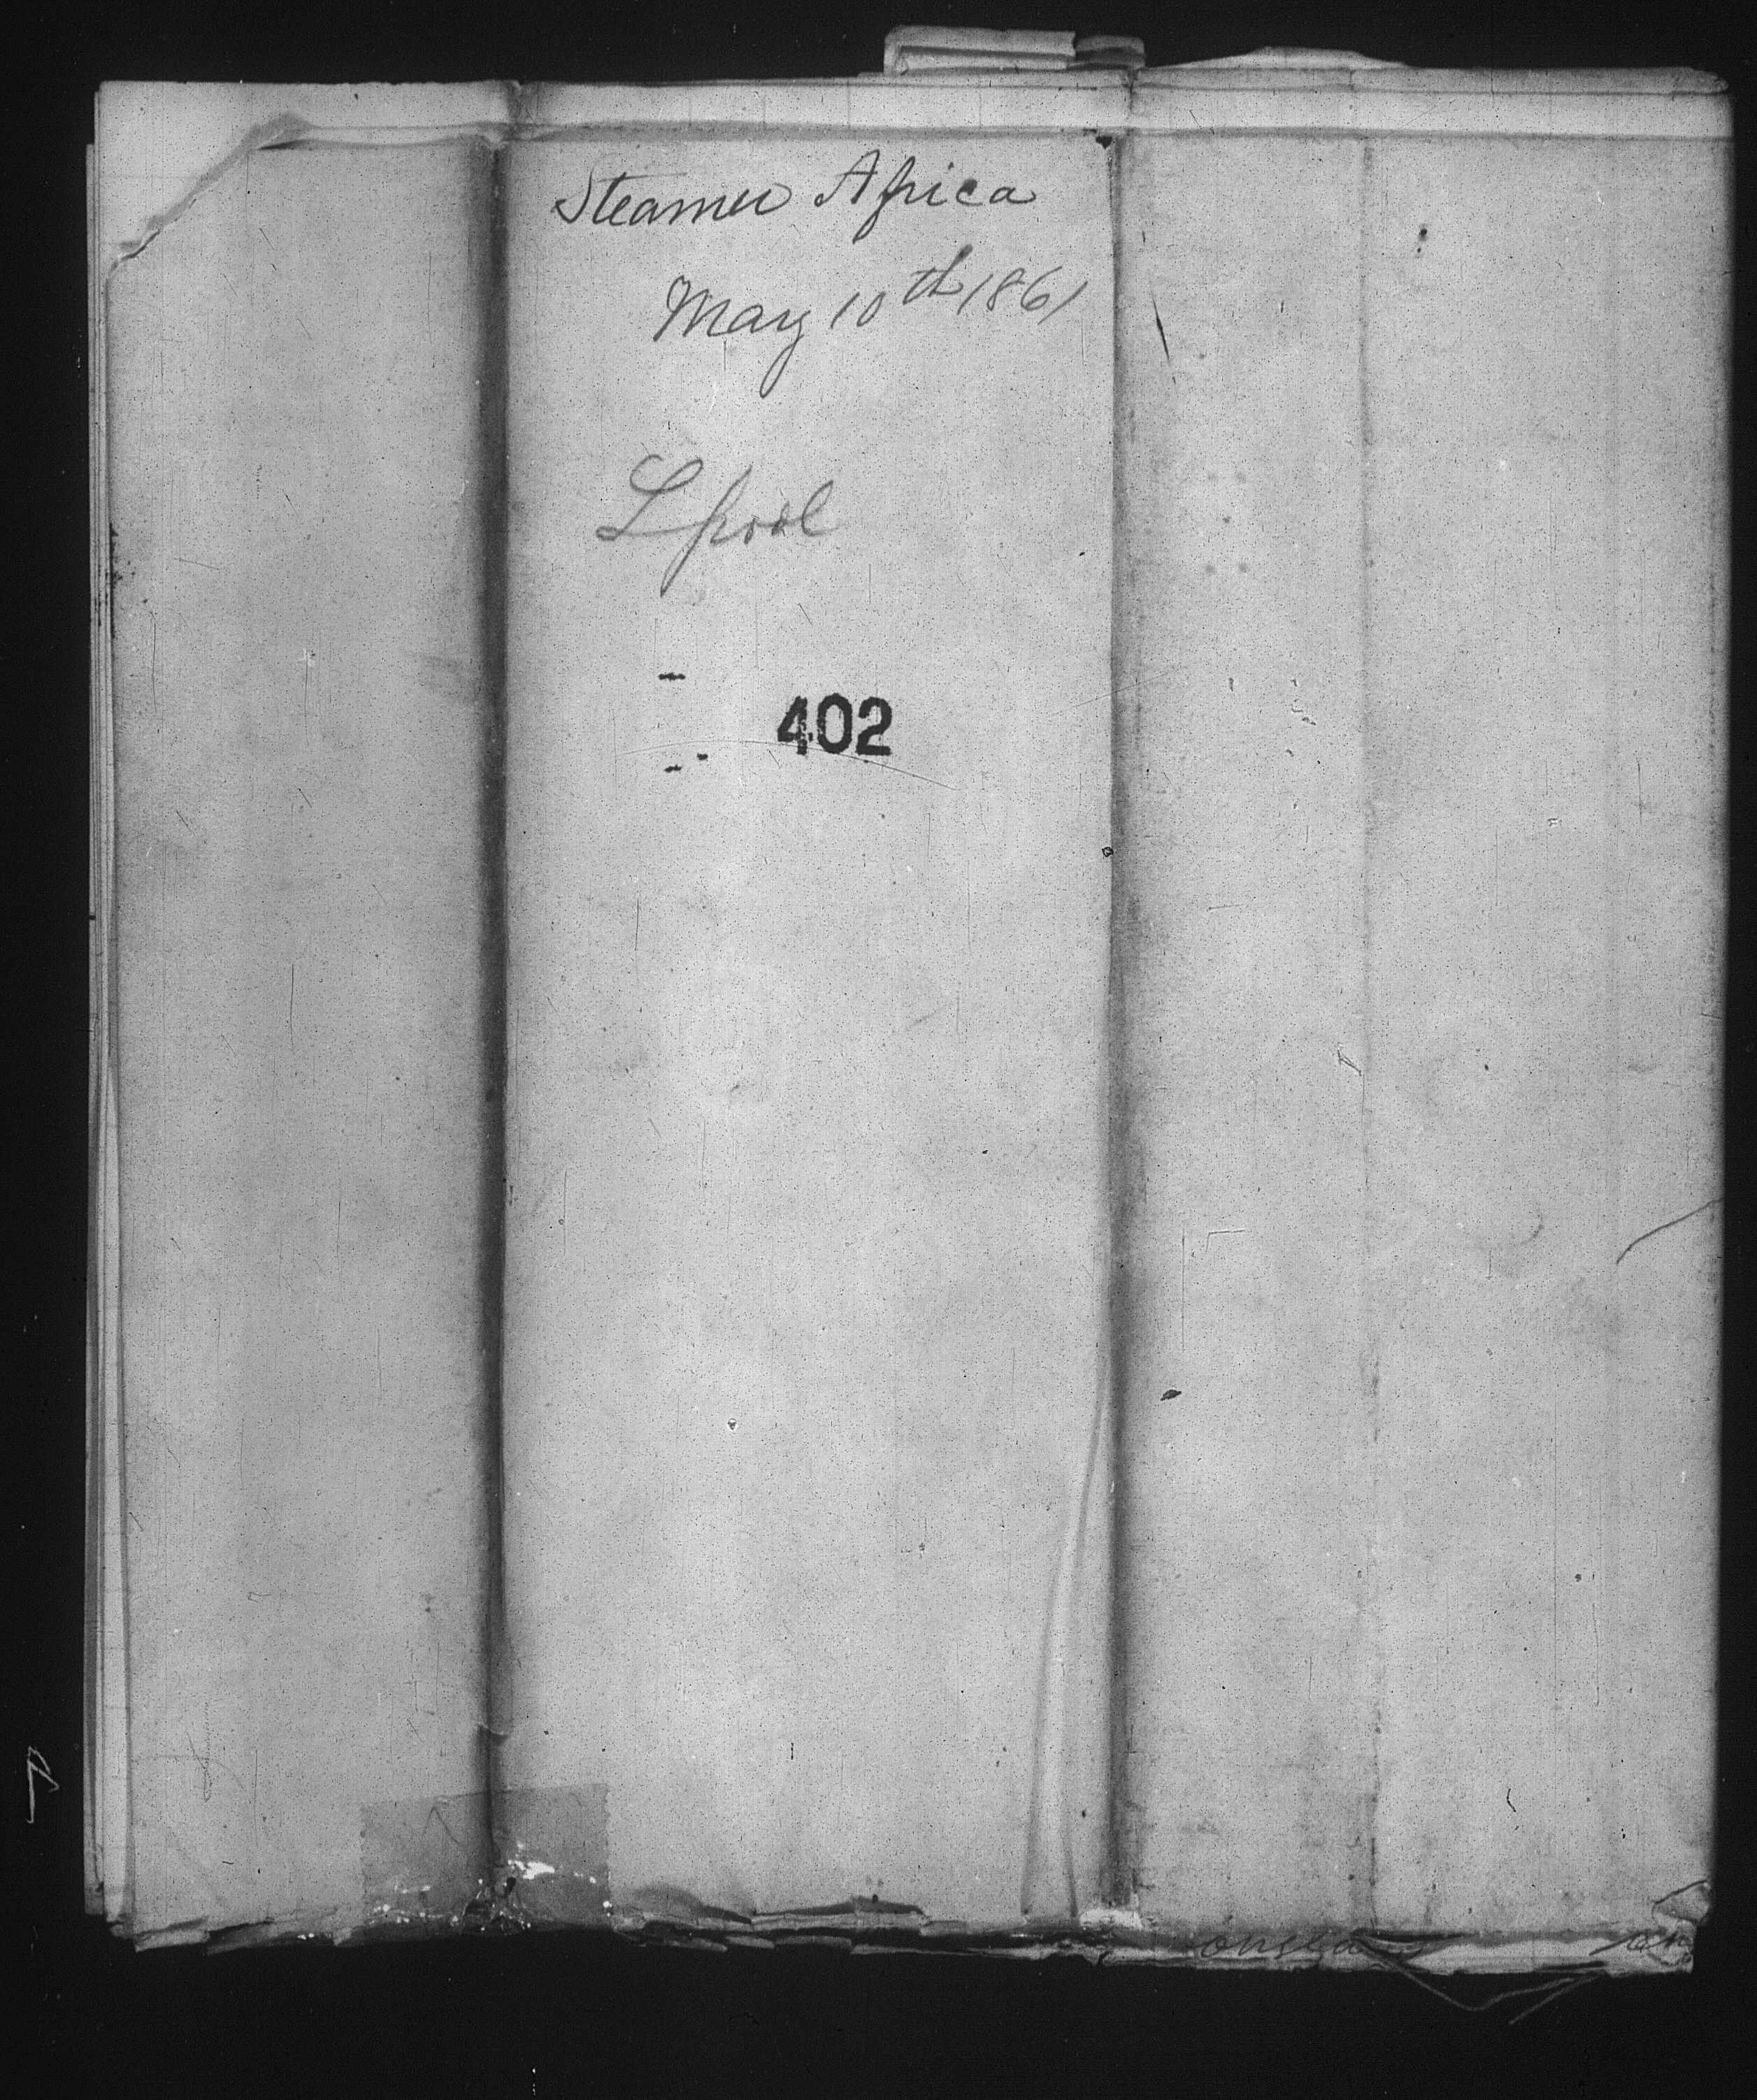 Steamer Africa
May 10th 1861
Lpool
402